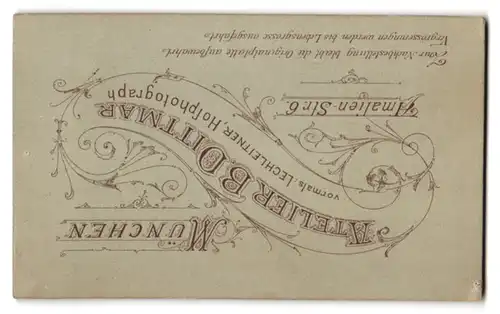 ATELIER B. DITTMAR
vormals: LECHLEITNER, Hofphotograph
MÜNCHEN
Amalien-Str. 6
Zur Nachbestellung bleibt die Originalplatte aufbewahrt.
Vergrösserungen werden bis Lebensgrösse ausgeführt.